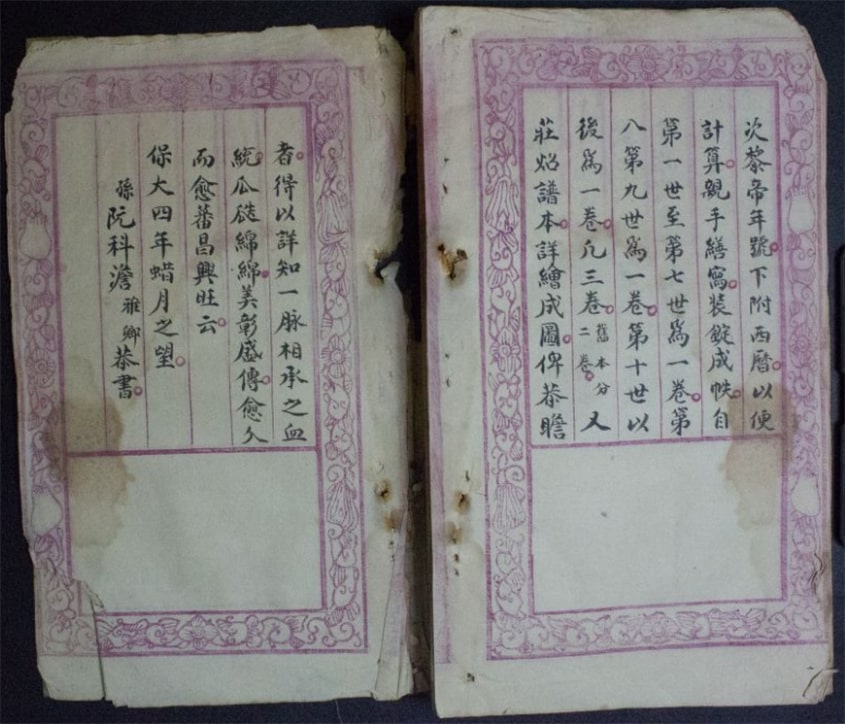 次黎帝年號下附西曆以便
計算親手繕寫装錠成帙自
第一世至第七世爲一卷第
八第九世爲一卷第十世以
後爲一卷凡三卷舊本分二卷又
莊炤譜本詳繪成圖俾恭瞻
者得以詳知一脉相承之血
統瓜瓞綿綿美彰盛傳愈久
而愈蕃昌興旺云
保大四年蜡月之望
孫阮科澹雅鄉恭書